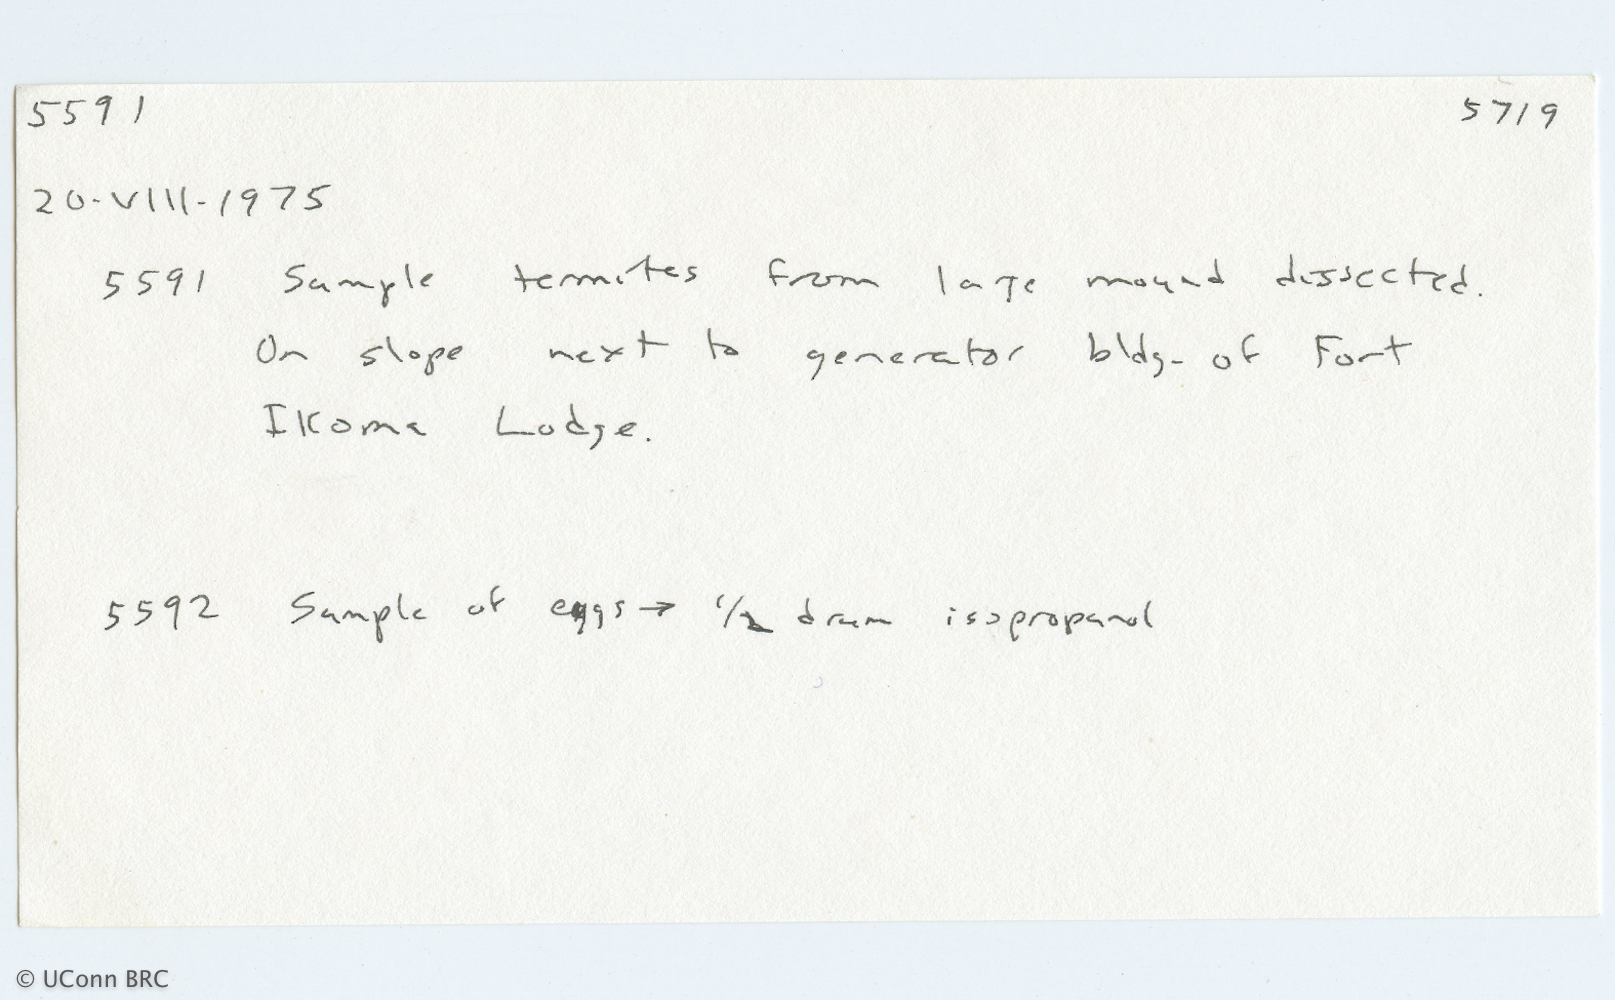 5591 5719
20-VIII-1975
5591 Sample termites from large mound dissected.
On slope next to generator bldg. of Fort
Ikoma Lodge.
5592 Sample of eggs → 1/2 dram isopropanol
© UConn BRC